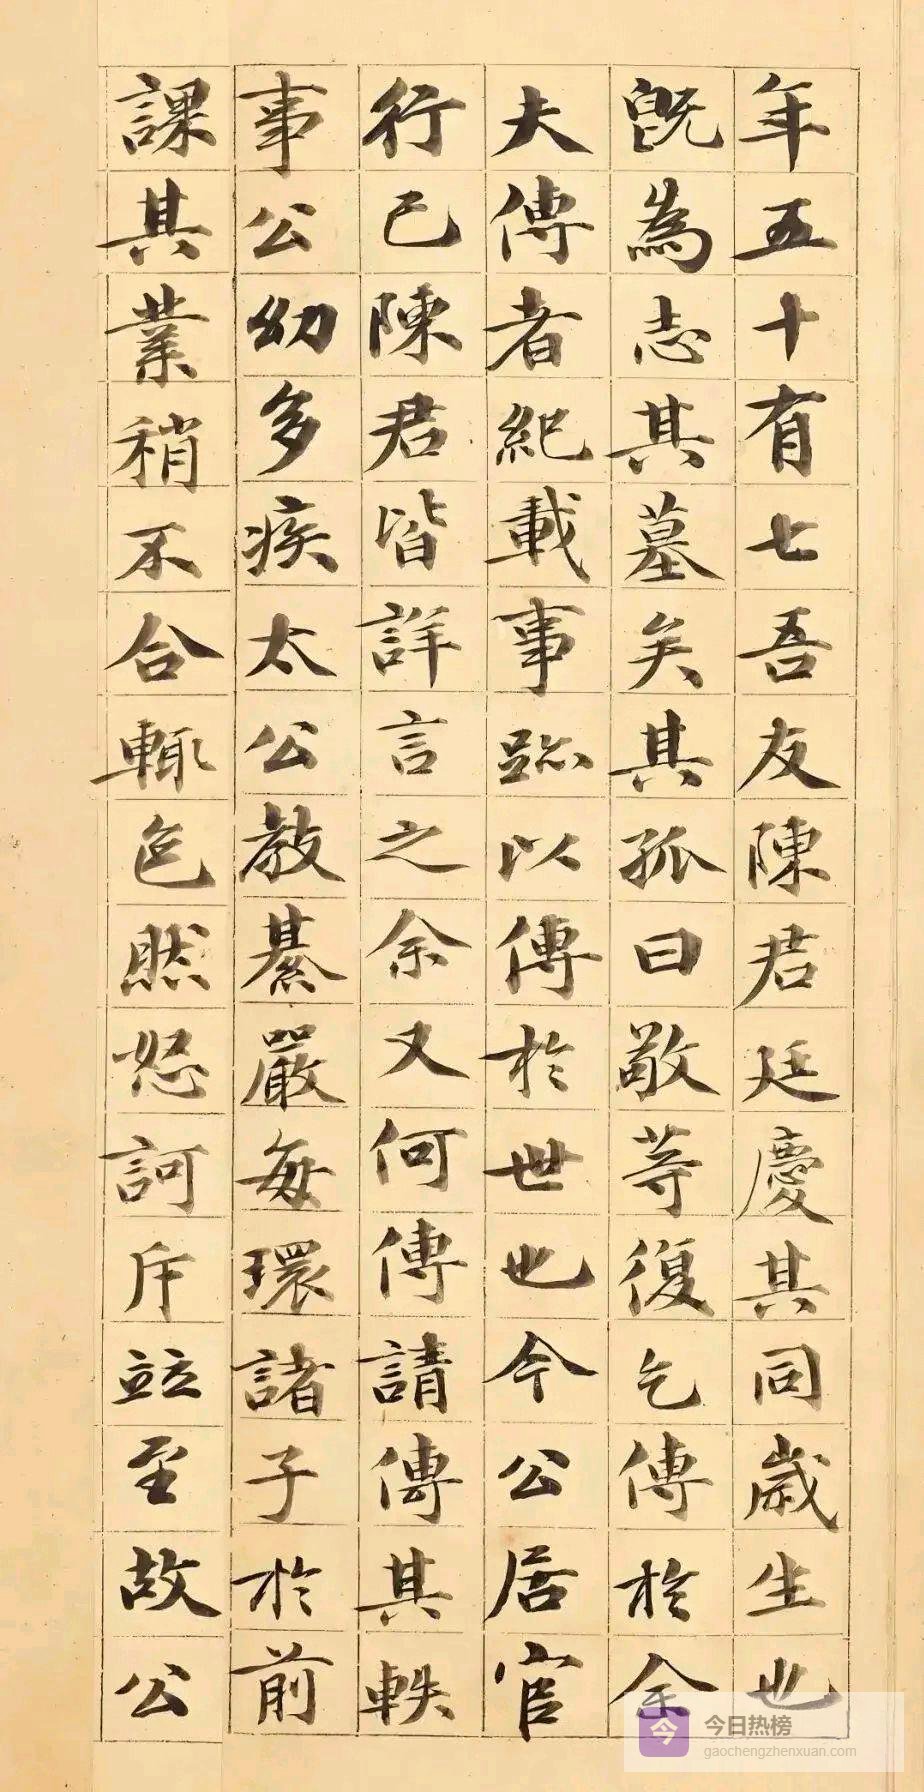 年五十有七吾友陳君廷慶其同歲生也
既為志其墓矣其孤曰敬等復乞傳於余
夫傳者紀載事跡以傳於世也今公居官
行已陳君皆詳言之余又何傳請傳其軼
事公幼多疾太公教綦嚴每環諸子於前
課其業稍不合輒色然怒訶斥竝至故公
今日热榜
gaochengzhenxuan.com